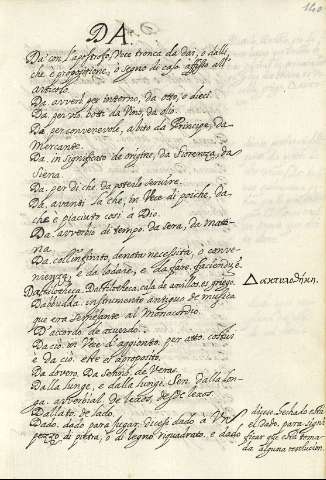 140
DA.
Da con l'apostrofo, Vece tronca da dai, o dalli,
che è propositione, o segno di caso affisso all'
articolo.
Da avverb per intorno, da otto, o dieci.
Da per
da Vino, da olio.
Da per convenevole, abito da Principe, da
Mercante.
Da, in significato de origine, da Fiorenza, da
Siena.
Da, per di che, da poterlo servire.
Da, avanti la che, in Vece di poiche, da
che è piaciuto cosi a Dio.
Da, avverbio di tempo, da sera, da matti-
na.
Da, coll'infinito, denota necessità, o conve-
nienza, e da lodare, e da fare,
Dactiloteca, cala de anillos es griego.
Δακτυλοθήκη.
Dabbudda: instrumento antiguo de musica
que era semejante al Monacordio.
D'accordo, de acuerdo.
Da ciò in Vece d'aggionto, per atto,
è da ciò, este es aproposito.
Da dovero, Da senno, de Veras.
Dalla lunge, e dalla lunge, Sen. dalla lon-
ga, adverbial, de lexos, desde lexos.
Dallato, de lado.
Dado, dado, para jugar, dicese dado à Un
pezzo di pietra, o di legno riquadrato, e dado
dicese, l'echado està
el dado, para signi-
ficar que està toma-
da alguna resolucion.